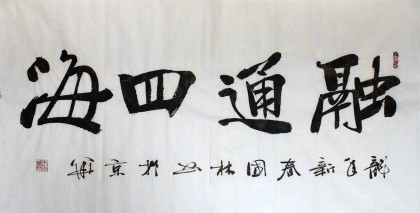 融通四海
龍年新春國林書於京華